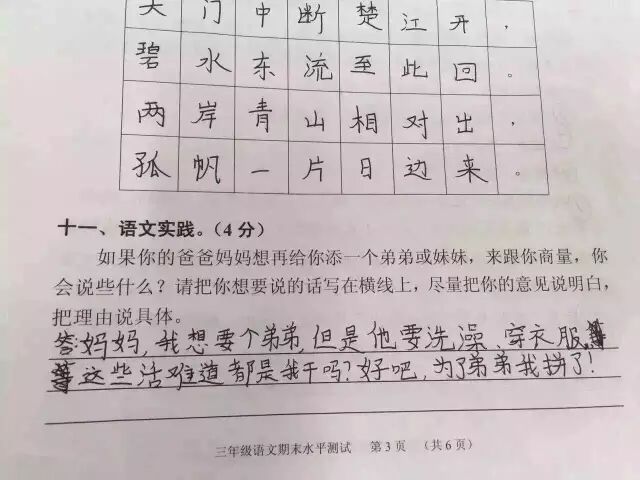 天门中断楚江开，
碧水东流至此回。
两岸青山相对出，
孤帆一片日边来。
十一、语文实践。（4分）
如果你的爸爸妈妈想再给你添一个弟弟或妹妹，来跟你商量，你
会说些什么？请把你想要说的话写在横线上，尽量把你的意见说明白，
把理由说具体。
答:妈妈,我想要个弟弟,但是他要洗澡、穿衣服
等这些活难道都是我干吗?好吧,为了弟弟我拼了!
三年级语文期末水平测试 第3页 （共6页）